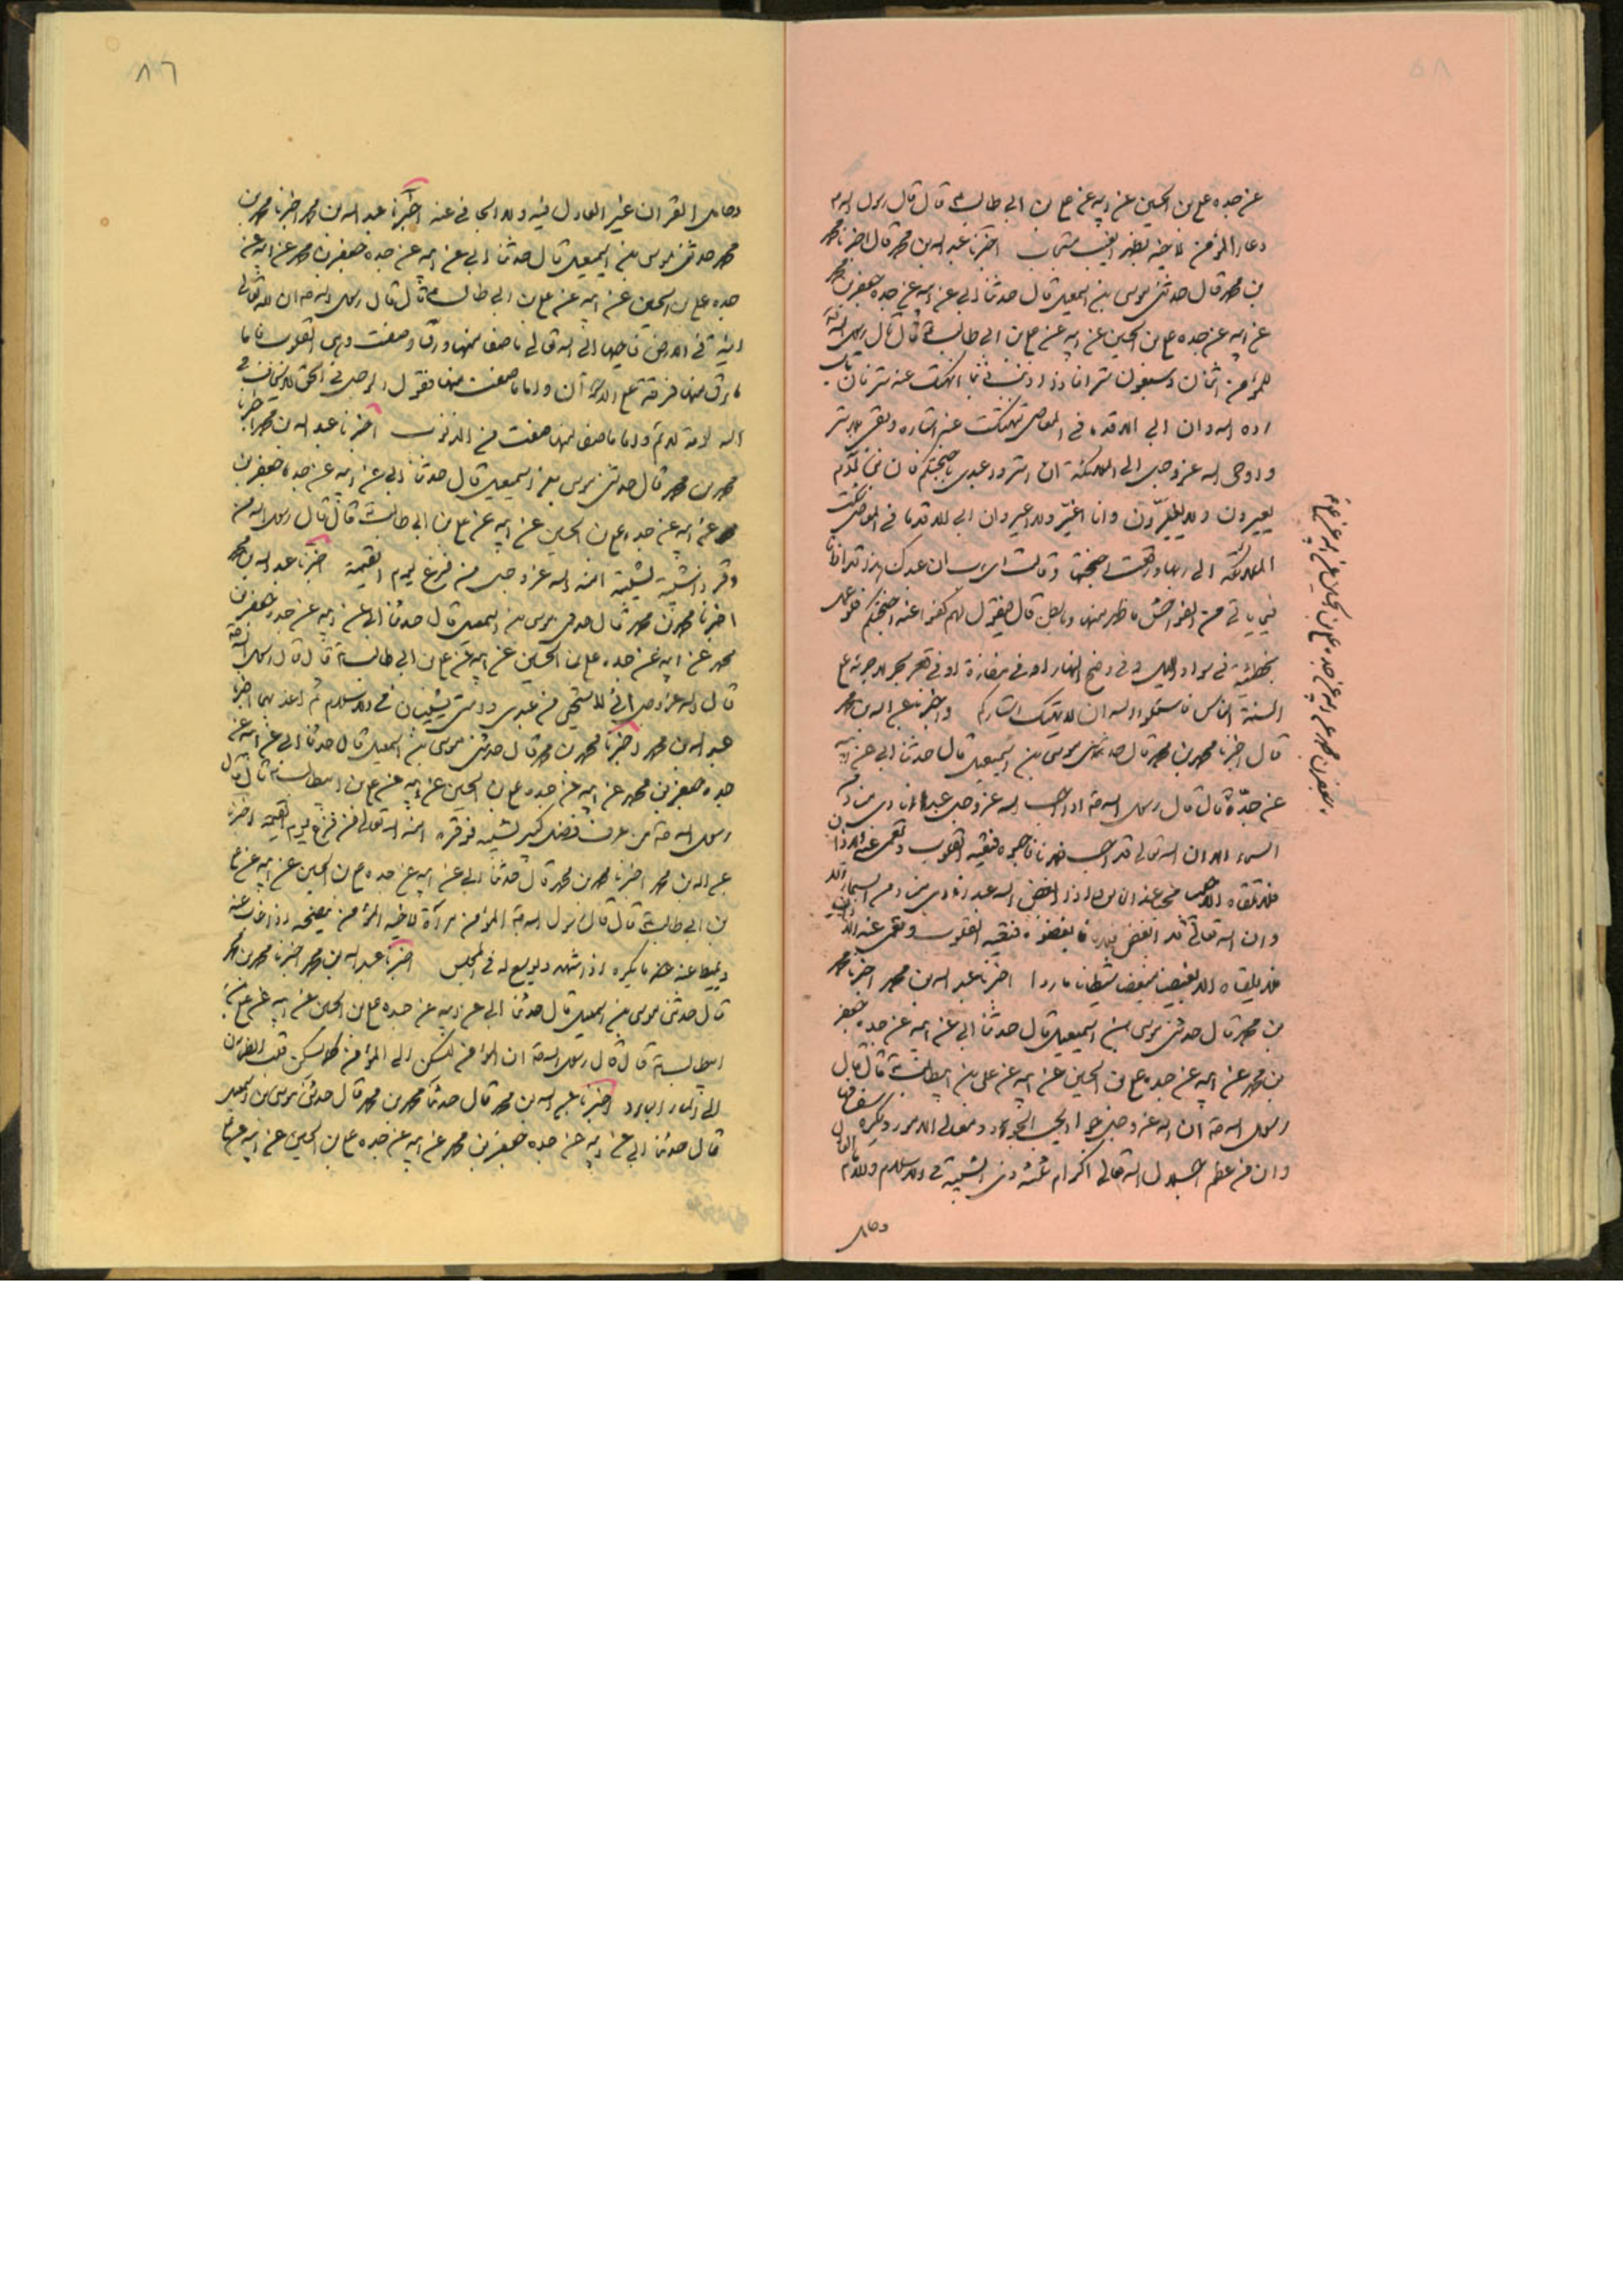 عن جده علي بن الحسين عن ابيه عن علي بن ابي طالب ع قال قال رسول الله ص
دعاء المؤمن لاخيه بظهر الغيب مستجاب اخبرنا عبد الله بن محمد قال اخبرنا محمد
بن محمد قال حدثني موسى بن اسمعيل قال حدثنا ابي عن ابيه عن جده جعفر بن محمد
عن ابيه عن جده علي بن الحسين عن ابيه عن علي بن ابي طالب ع قال قال رسول الله ص
للمؤمن اثنان وسبعون سترا فاذا اذنب ذنبا انهتك عنه ستر فان تاب
رده الله وان ابى الا قدما في المعاصي تهتكت عنه استاره وبقي بلا ستر
واوحى الله عز وجل الى الملائكة ان استروا عبدي باجنحتكم فان بني آدم
يعيرون ولا يغيرون وانا اغير ولا اعير وان ابى الا قدما في المعاصي شكت
الملائكة الى ربها ورفعت اجنحتها وقالت اي رب ان عبدك هذا قد اذانا
فيما ياتي من الفواحش ما ظهر منها وما بطن قال فيقول لهم كفوا عنه اجنحتكم فلو عمل
بخطيئة في سواد الليل او في وضح النهار او في مفازة او في قعر بحر لاجرى على
السنة الناس فاسئلوا الله ان لا يهتك استاركم واخبرنا عبد الله بن محمد
قال اخبرنا محمد بن محمد قال حدثني موسى بن اسمعيل قال حدثنا ابي عن ابيه
عن جده قال قال رسول الله ص اذا احب الله عز وجل عبدا نادى مناد من
السماء الا ان الله تعالى قد احب فلانا فاحبوه فتعيه القلوب
وان الله تعالى قد ابغض فلانا فابغضوه فتعيه القلوب وتعي عنه الاذان
فلا يلقاه الا بغيضا مبغضا شيطانا ماردا اخبرنا عبد الله بن محمد اخبرنا محمد
بن محمد قال حدثني موسى بن اسمعيل قال حدثنا ابي عن ابيه عن جده جعفر
بن محمد عن ابيه عن جده علي بن الحسين عن ابيه عن علي بن ابيطالب ع قال قال
رسول الله ص ان الله عز وجل جواد يحب الجود ومعالي الامور ويكره سفسافها
وان من عظم جلال الله تعالى اكرام ثلثة ذي الشيبة في الاسلام والامام العادل
وحامل
جعفر بن محمد عن ابيه عن جده علي بن الحسين عن ابيه عن علي ع
٨٦
وحامل القرآن غير العادل فيه ولا الجافي عنه اخبرنا عبد الله بن محمد اخبرنا محمد بن
محمد حدثني موسى بن اسمعيل قال حدثنا ابي عن ابيه عن جده جعفر بن محمد عن ابيه عن
جده علي بن الحسين عن ابيه عن علي بن ابي طالب ع قال قال رسول الله ص ان لله تعالى
انية في الارض فاحبها الى الله تعالى ما صفا منها ورق وصلب وهي القلوب فاما
ما رق منها فرقة على الاخوان واما ما صلب منها فقول الرجل في الحق لا يخاف في
الله لومة لائم واما ما صفا منها صفت من الذنوب اخبرنا عبد الله بن محمد اخبرنا
محمد بن محمد قال حدثني موسى بن اسمعيل قال حدثنا ابي عن ابيه عن جده جعفر بن
محمد عن ابيه عن جده علي بن الحسين عن ابيه عن علي بن ابي طالب ع قال قال رسول الله ص من
وقر ذا شيبة لشيبته امنه الله عز وجل من فزع يوم القيمة اخبرنا عبد الله بن محمد
اخبرنا محمد بن محمد قال حدثني موسى بن اسمعيل قال حدثنا ابي عن ابيه عن جده جعفر بن
محمد عن ابيه عن جده علي بن الحسين عن ابيه عن علي بن ابي طالب ع قال قال رسول الله ص
قال الله عز وجل اني لاستحيي من عبدي وامتي يشيبان في الاسلام ثم اعذبهما اخبرنا
عبد الله بن محمد اخبرنا محمد بن محمد قال حدثني موسى بن اسمعيل قال حدثنا ابي عن ابيه عن
جده جعفر بن محمد عن ابيه عن جده علي بن الحسين عن ابيه عن علي بن ابيطالب ع قال قال
رسول الله ص من عرف فضل كبير لشيبه فوقره امنه الله تعالى من فزع يوم القيمة اخبرنا
عبد الله بن محمد اخبرنا محمد بن محمد قال حدثنا ابي عن ابيه عن جده علي بن الحسين عن ابيه عن علي
بن ابي طالب ع قال قال رسول الله ص المؤمن مرآة لاخيه المؤمن ينصحه اذا غاب عنه
ويميط عنه ما يكره اذا شهد ويوسع له في المجلس اخبرنا عبد الله بن محمد اخبرنا محمد بن محمد
قال حدثني موسى بن اسمعيل قال حدثنا ابي عن ابيه عن جده علي بن الحسين عن ابيه عن علي بن
ابيطالب ع قال قال رسول الله ص ان المؤمن ليسكن الى المؤمن كما يسكن قلب الظمآن
الى الماء البارد اخبرنا عبد الله بن محمد قال حدثنا محمد بن محمد قال حدثني موسى بن اسمعيل
قال حدثنا ابي عن ابيه عن جده جعفر بن محمد عن ابيه عن جده علي بن الحسين عن ابيه عن علي